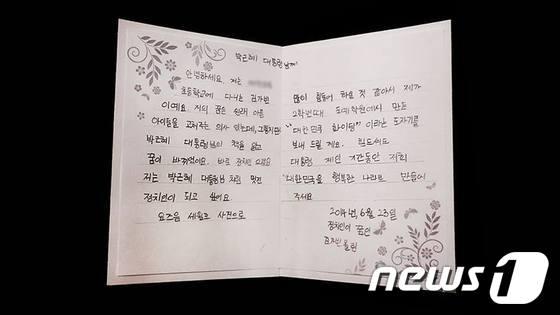 박근혜 대통령님께
안녕하세요. 저는
초등학교에 다니는
이예요. 저의 꿈은 원래 아픈
아이들을 고쳐주는 의사 였는데, 그렇지만
박근혜 대통령님이 책을 읽고
꿈이 바뀌었어요. 바로 정치인 으로요
저는 박근혜 대통령님 처럼 멋진
정치인이 되고 싶어요.
요즈음 세월호 사건으로
많이 힘들어 하실 것 같아서 제가
2학년때 도예학원에서 만든
"대한민국 화이팅" 이라는 도자기를
보내 드릴 게요. 힘드세요
대통령 재임 기간동안 저희
대한민국을 행복한 나라로 만들어
주세요
2014년, 6월 23일
정치인이 꿈인
올림
news1